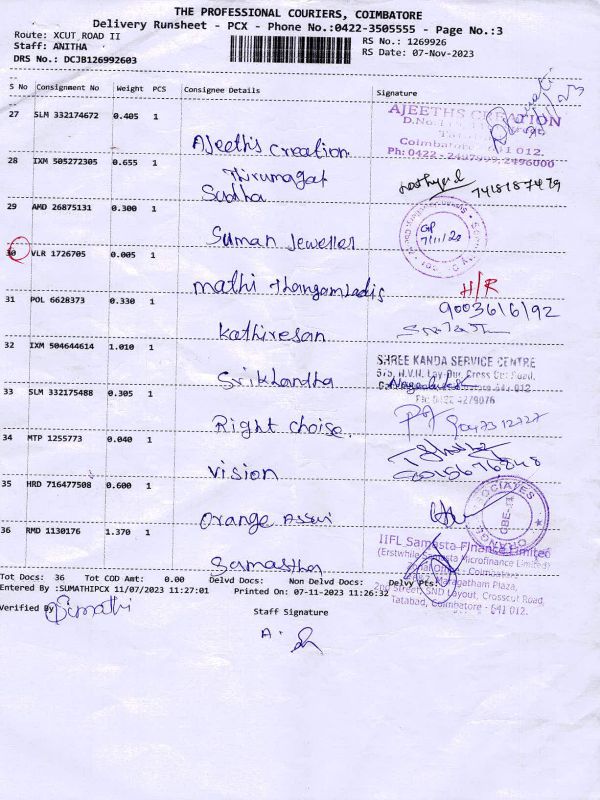 THE PROFESSIONAL COURIERS, COIMBATORE
Delivery Runsheet - PCX - Phone No.:0422-3505555 - Page No.:3
Route: XCUT_ROAD II
RS No.: 1269926
Staff: ANITHA
RS Date: 07-Nov-2023
DRS No.: DCJB126992603
S No Consignment No Weight PCS Consignee Details Signature
27 SLM 332174672 0.405 1
AJEETHS CREATION
Coimbatore
Ajeeths creation
28 IXM 505272305 0.655 1
Thirumagal
Sudha
7418187479
29 AMD 26875131 0.300 1
Suman Jeweller
30 VLR 1726705 0.005 1
mathi Thangam Ladis
H/R
31 POL 6628373 0.330 1
9003616192
Kathiresan
32 IXM 504644614 1.010 1
SHREE KANDA SERVICE CENTRE
Srikhandha
33 SLM 332175488 0.305 1
Right choise.
34 MTP 1255773 0.040 1
Vision
35 HRD 716477508 0.600 1
Orange
36 RMD 1130176 1.370 1
IIFL Samasta Finance Limited
(Erstwhile Samasta Microfinance Limited)
Samastha
Tot Docs: 36 Tot COD Amt: 0.00 Delvd Docs: Non Delvd Docs: Delvy Pts:
Maragatham Plaza,
Entered By :SUMATHIPCX 11/07/2023 11:27:01 Printed On: 07-11-2023 11:26:32
Street, SND Layout, Crosscut Road,
Tatabad, Coimbatore - 641 012.
Verified By Sumathi
Staff Signature
A.